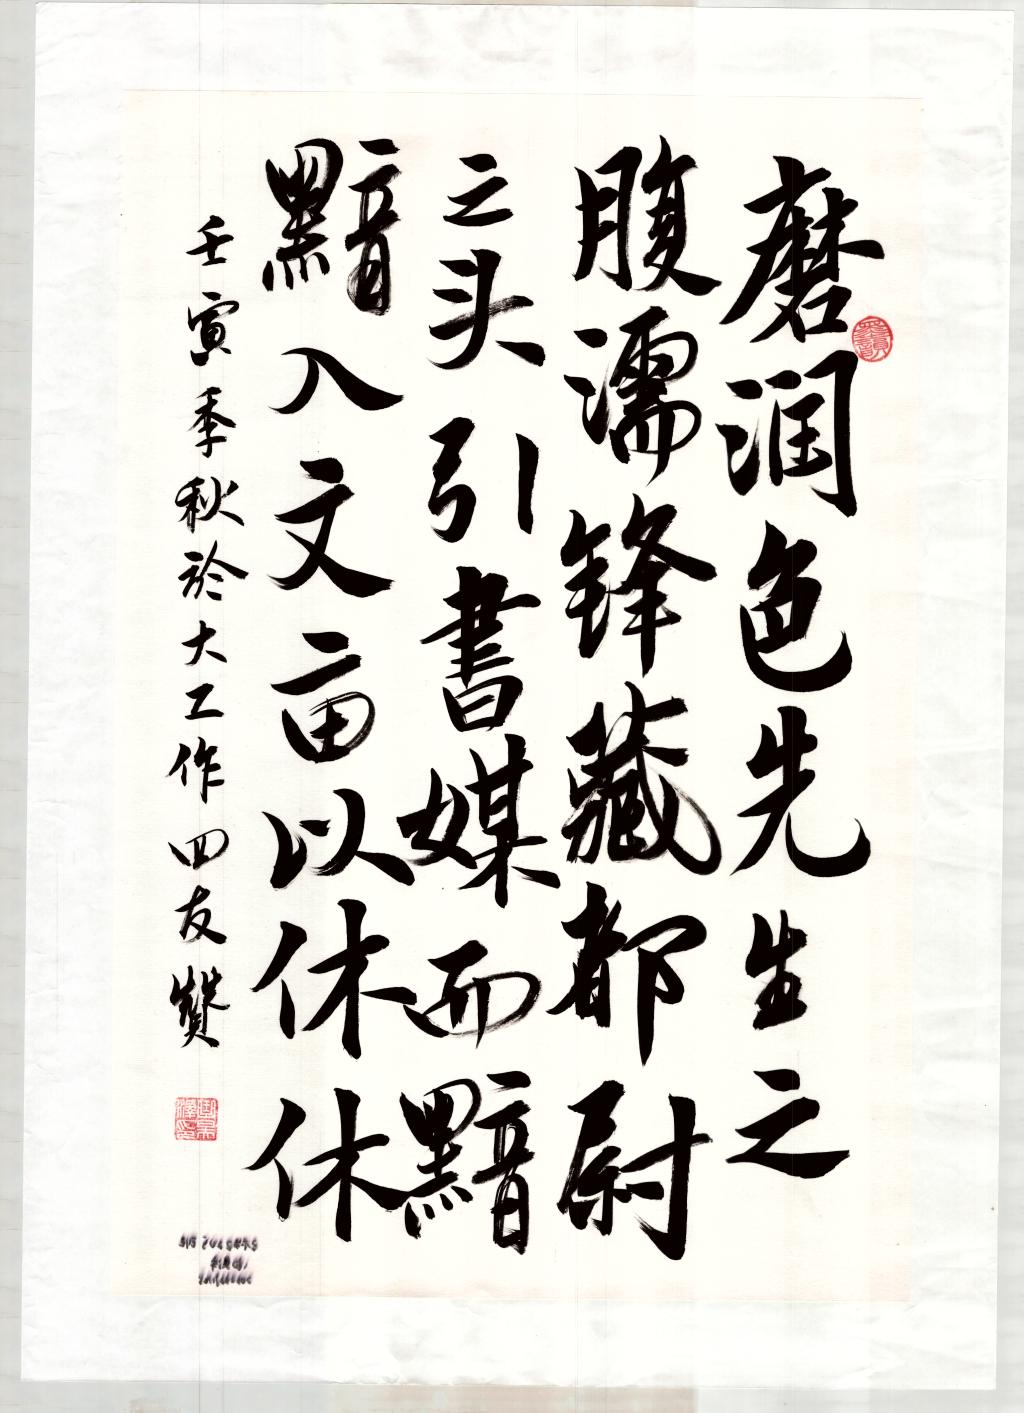 磨润色先生之
腹濡锋藏都尉
之头引書媒而黯
黯入文亩以休休
壬寅季秋於大工作四友赞